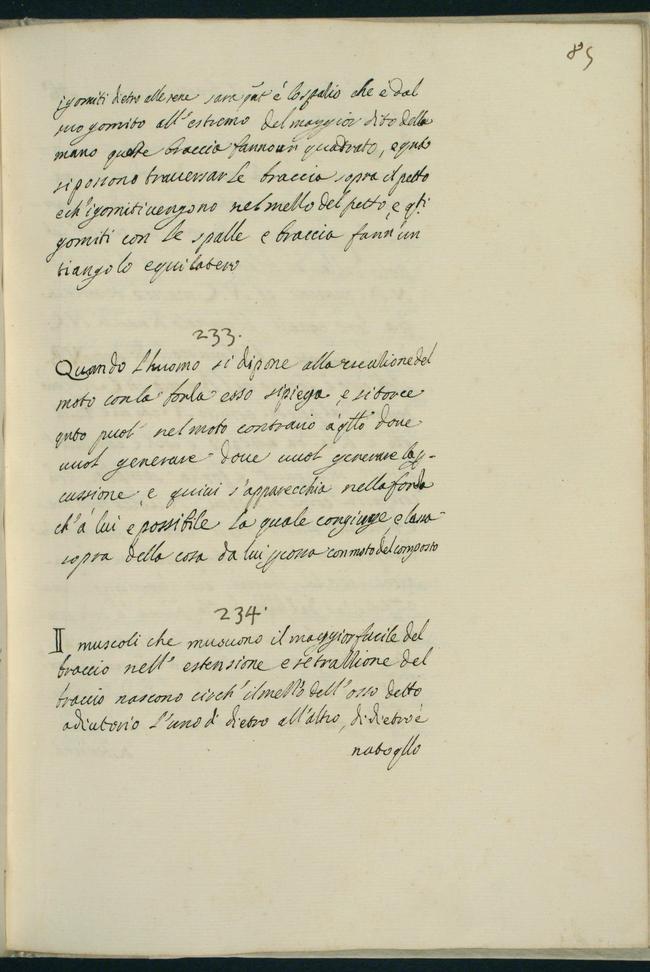 85
i gomiti dietro alle rene sara q̃nt é lo spatio che è dal
suo gomito all'estremo del maggior dito della
mano queste braccia fanno un quadrato, e q̃nto
si possono traversar le braccia sopra il petto
e ch'i gomiti vengono nel mezzo del petto, e q̃ti
gomiti con le spalle e braccia fann'un
triangolo equilatero
233.
Quando l'huomo si dipone alla creatione del
moto con la forza esso si piega e si torce
q̃nto puol' nel moto contrario à q̃llo dove
vuol generare dove vuol generare la p̱-
cussione, e quivi s'apparecchia nella forza
ch'à lui è possibile la quale congiunge, e lassa
sopra della cosa da lui p̱cossa con moto del composto
234.
I muscoli che muovono il maggior facile del
braccio nell'estensione e retrattione del
braccio nascono circh'il mezzo dell'osso detto
adiutorio l'uno di dietro all'altro, di dietro è
nato q̃llo